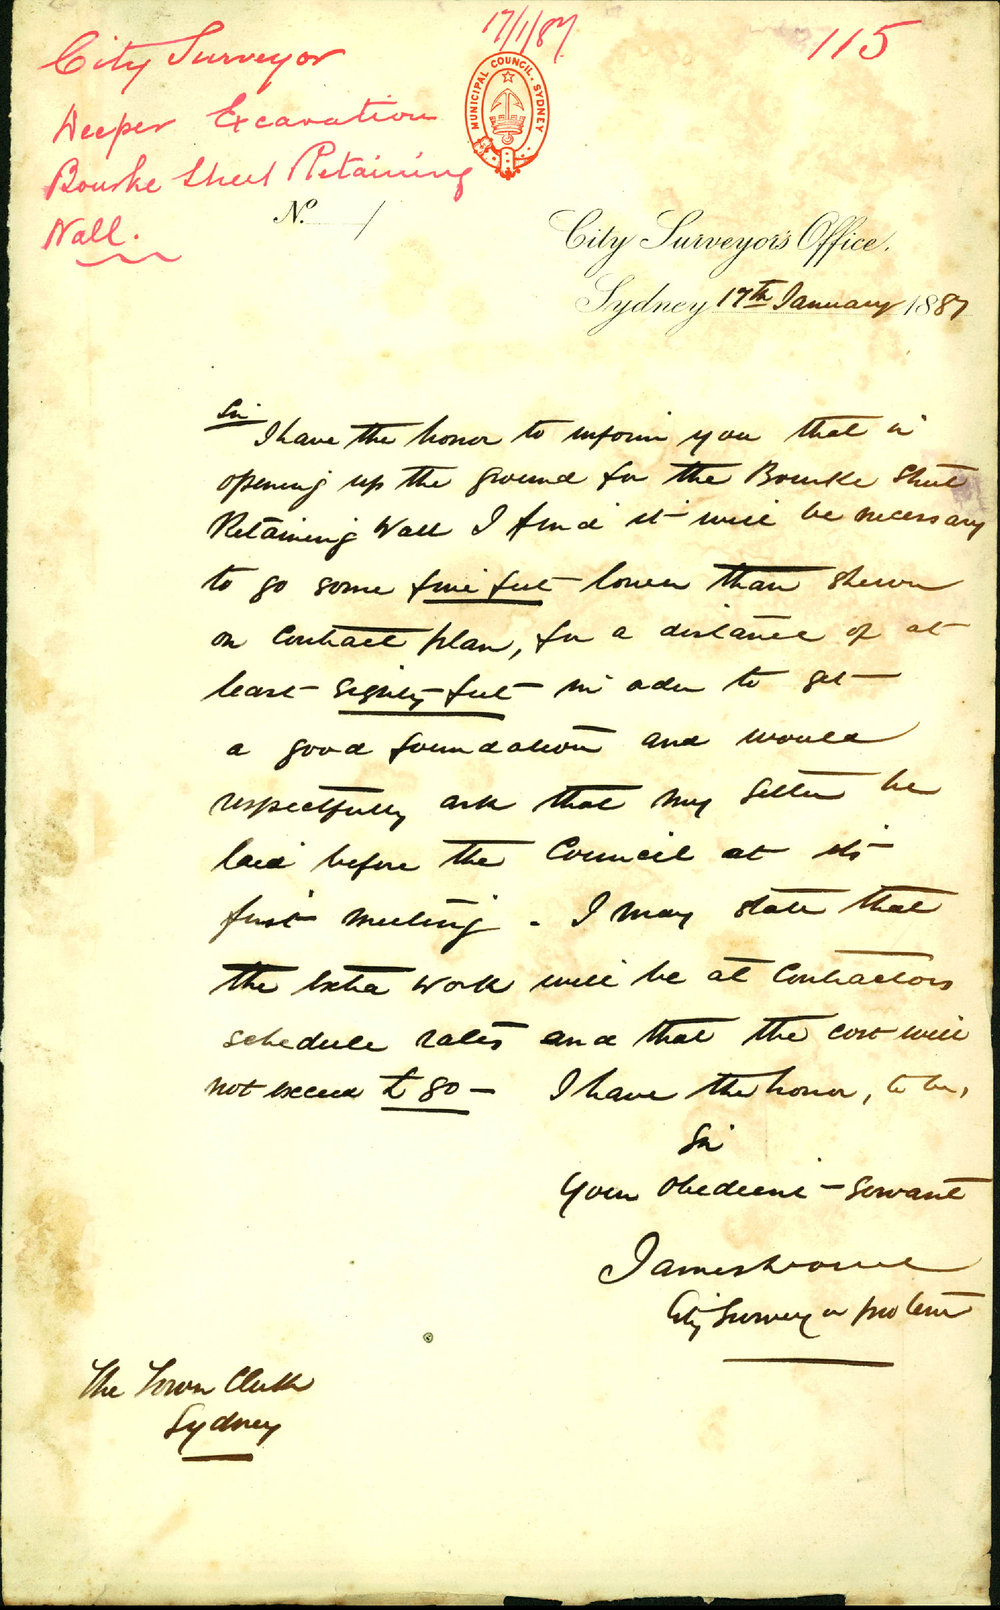 17/1/87.
115
City Surveyor
Deeper Excavation
Bourke Street Retaining
Wall.
MUNICIPAL COUNCIL. SYDNEY
No. /
City Surveyor's Office.
Sydney 17th January 1887
Sir
I have the honor to inform you that in
opening up the ground for the Bourke Street
Retaining Wall I find it will be necessary
to go some five feet lower than shewn
on Contract plan, for a distance of at
least Eighty feet in order to get
a good foundation and would
respectfully ask that my letter be
laid before the Council at its
first meeting. I may state that
the extra work will be at Contractors
schedule rates and that the cost will
not exceed £80 — I have the honor, to be,
Sir
Your Obedient Servant
James
City Surveyor pro tem
The Town Clerk
Sydney